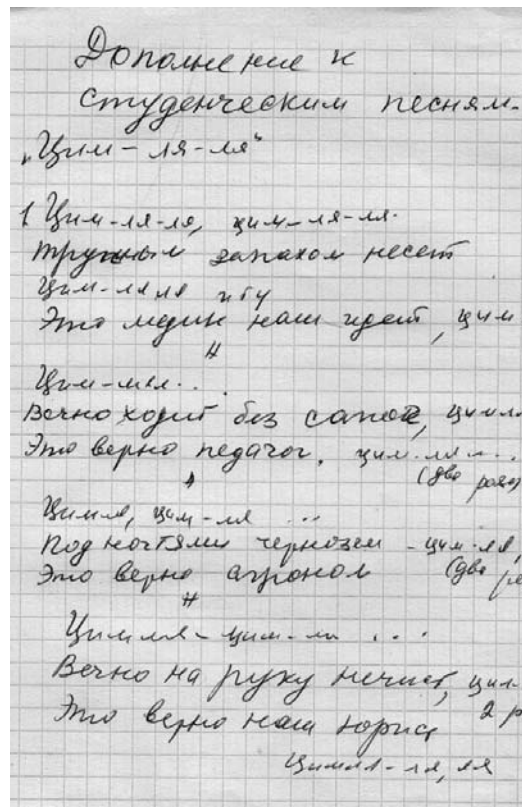 Дополнение к
студенческим песням.
„Цим-ля-ля“
1 Цим-ля-ля, цим-ля-ля.
трупным запахом несет
Цим-ляля
Это медик наш идет, цим
#
Цим-
Вечно ходит без сапог,
Это верно педагог, цим-ля...
(два раза)
Цимля, цим-ля ...
Под ногтями чернозем - цим-ля,
Это верно агроном (два
#
Цимля-цим-ля ...
Вечно на руку нечист, цим-
Это верно наш юрист 2 р
Цимля-ля, ля